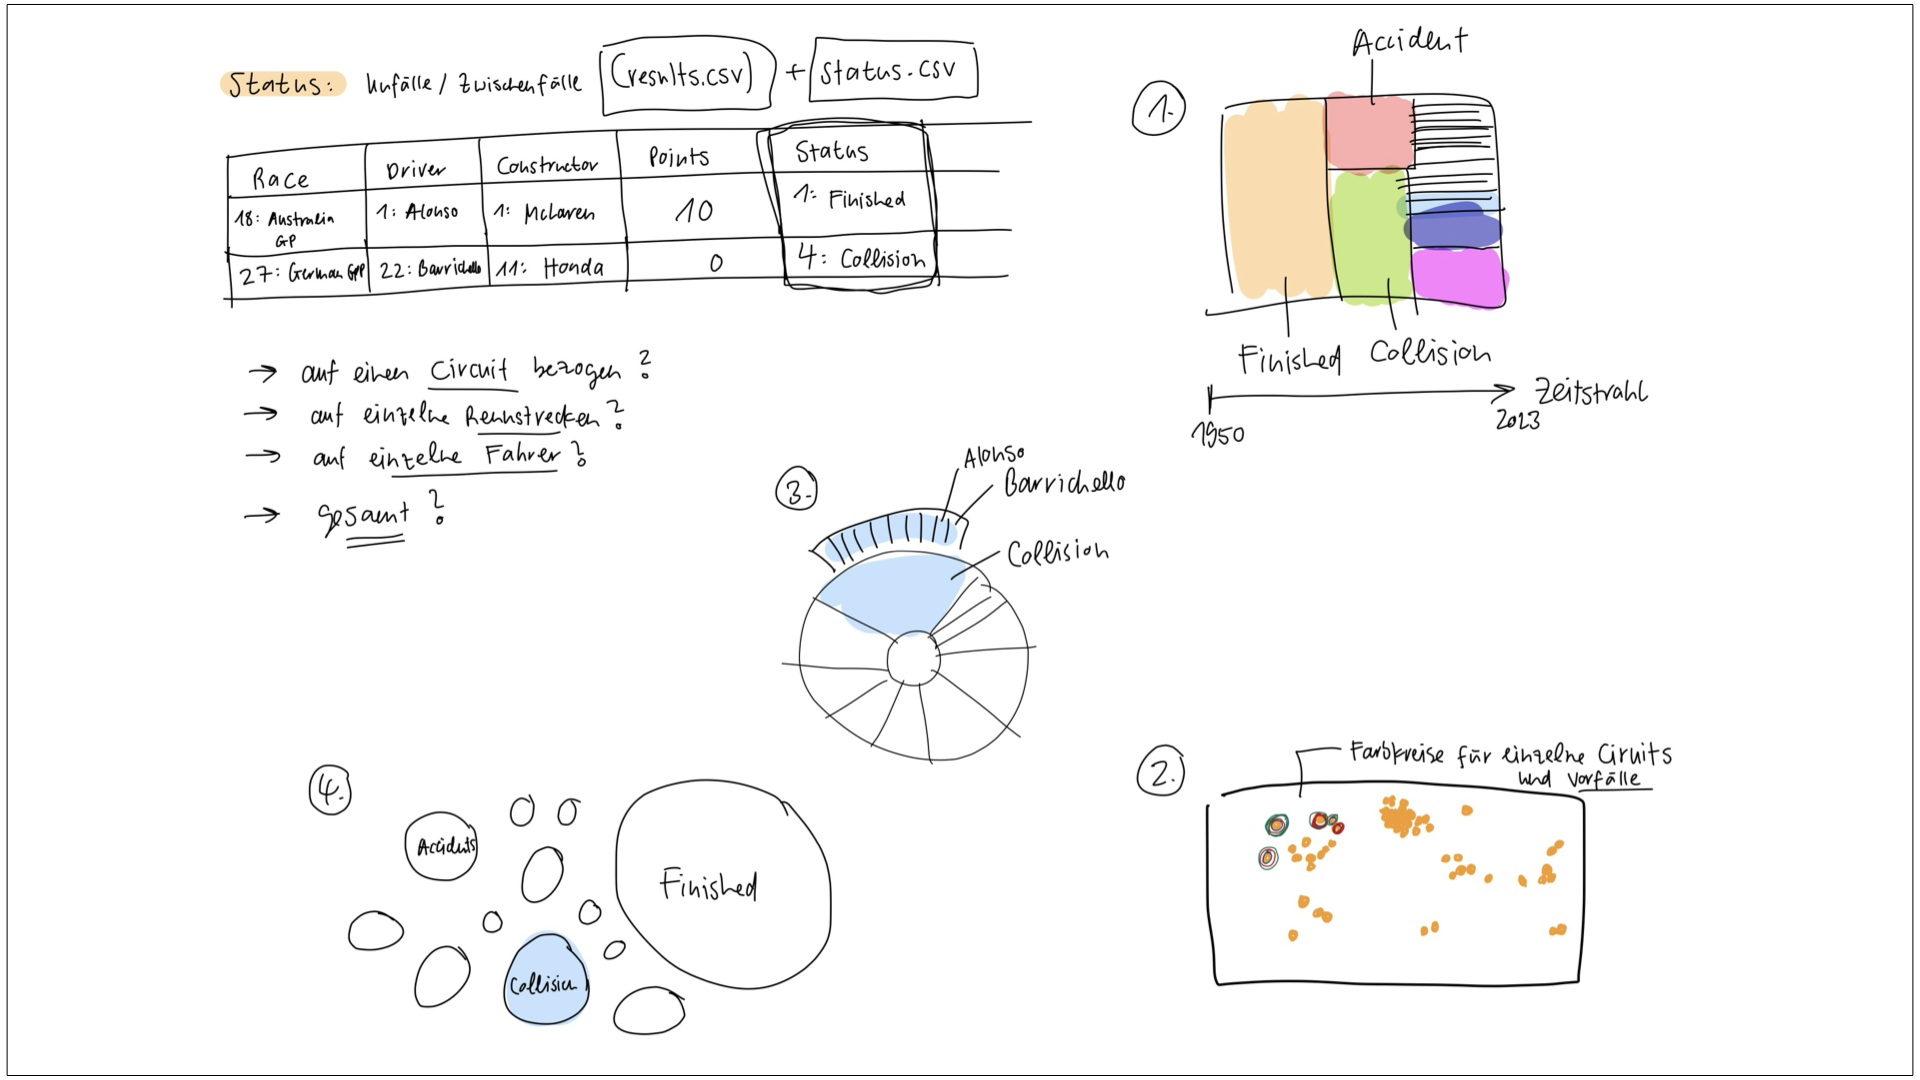 Status: Unfälle / Zwischenfälle (results.csv) + Status.csv
Race Driver Constructor Points Status
18: Australia GP 1: Alonso 1: McLaren 10 1: Finished
27: German GP 22: Barrichello 11: Honda 0 4: Collision
→ auf einen Circuit bezogen?
→ auf einzelne Rennstrecken?
→ auf einzelne Fahrer?
→ gesamt?
1.
Accident
Finished Collision
Zeitstrahl
1950 2023
3.
Alonso
Barrichello
Collision
4.
Accidents
Finished
Collision
2.
Farbkreise für einzelne Ciruits
und Vorfälle